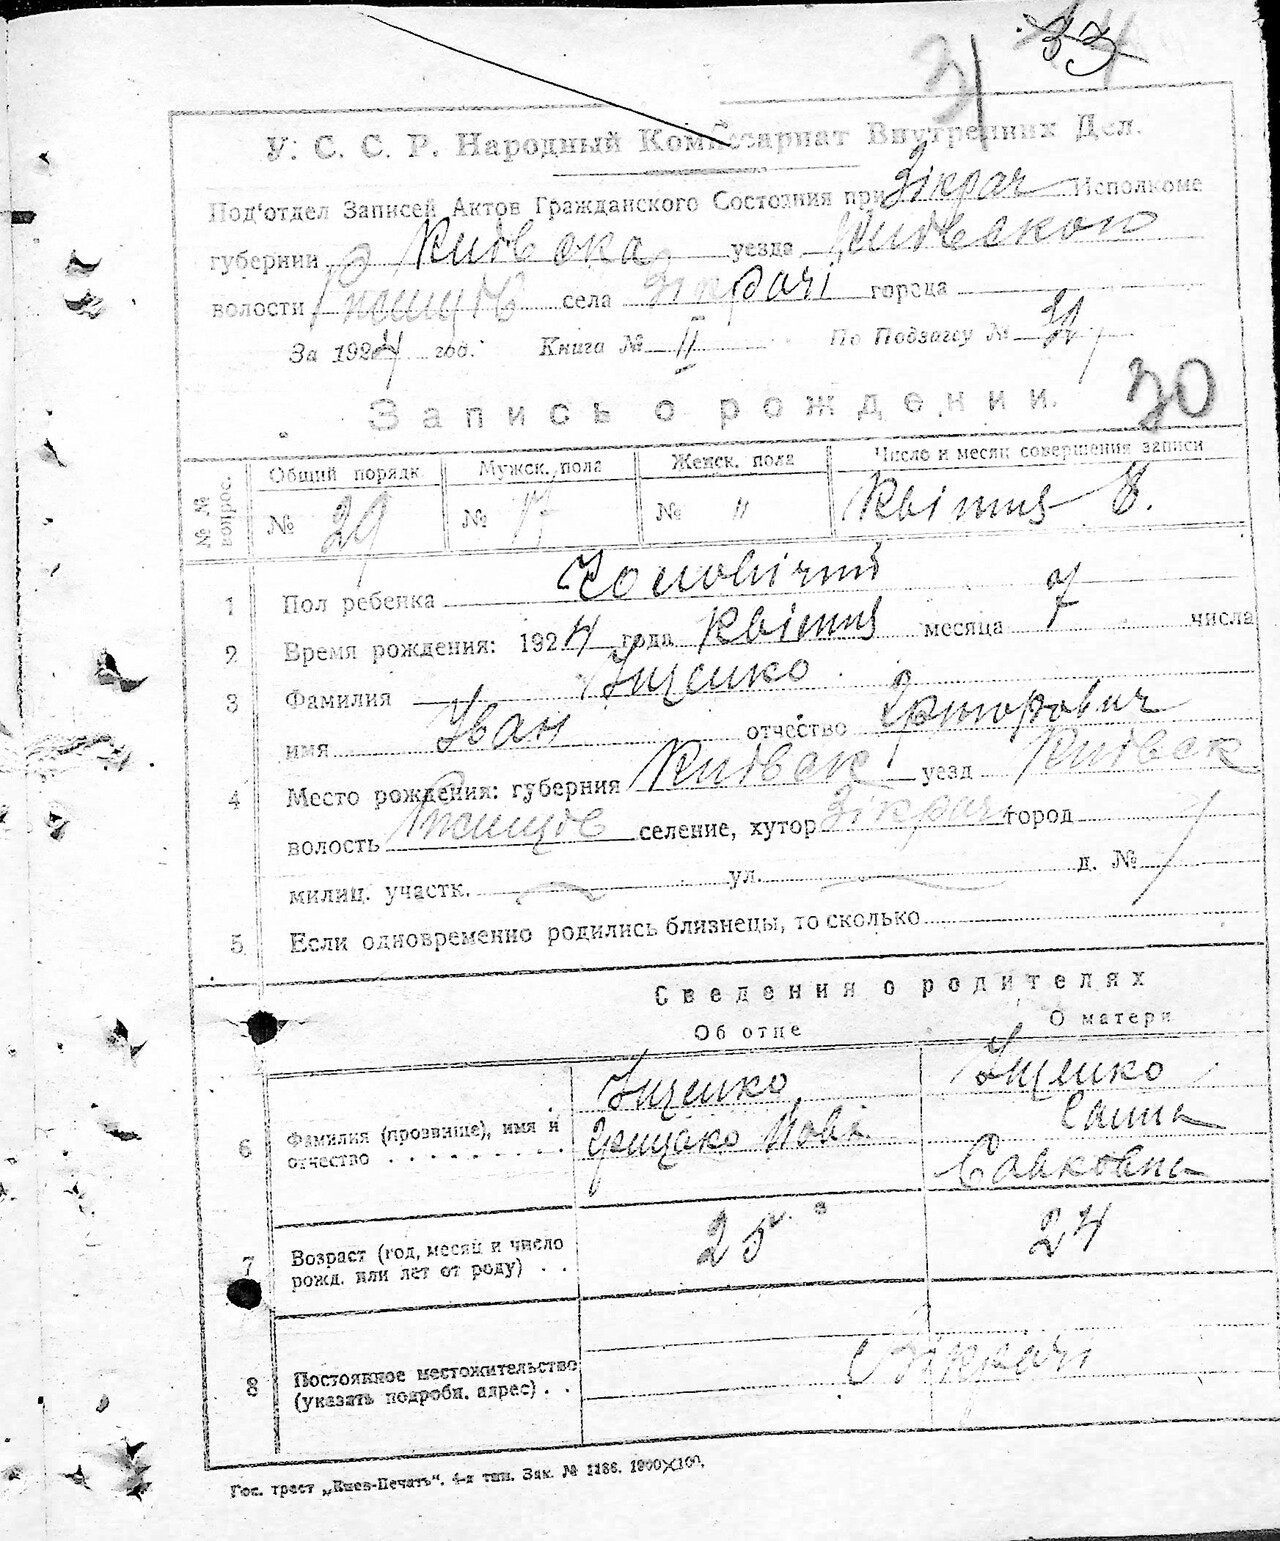 33
31
У. С. С. Р. Народный Комиссариат Внутренних Дел.
Под'отдел Записей Актов Гражданского Состояния при Зікрач. Исполкоме
губернии Київска уезда Київскоп
волости Ржищів села Зікрачі города
За 1924 год. Книга № II По Подзагсу № 31
30
Запись о рождении.
№№ вопрос. Общий порядк. Мужск. пола Женск. пола Число и месяц совершения записи
№ 29 № 17 № " Квітня 8.
1 Пол ребенка Чоловічий
2 Время рождения: 1924 года Квітня месяца 7 числа
3 Фамилия Іщенко
имя Іван отчество Григорович
4 Место рождения: губерния Київск уезд Київск
волость Ржищів селение, хутор Зікрачі город
милиц. участк. ул. д. №
5 Если одновременно родились близнецы, то сколько
Сведения о родителях
Об отце О матери
6 Фамилия (прозвище), имя и отчество Іщенко Грицько Іщенко
7 Возраст (год, месяц и число рожд. или лет от роду) 25 24
8 Постоянное местожительство (указать подробн. адрес) с. Зікрачі
Гос. трест „Киев-Печать". 4-я тип. Зак. № 1186. 1000×100.